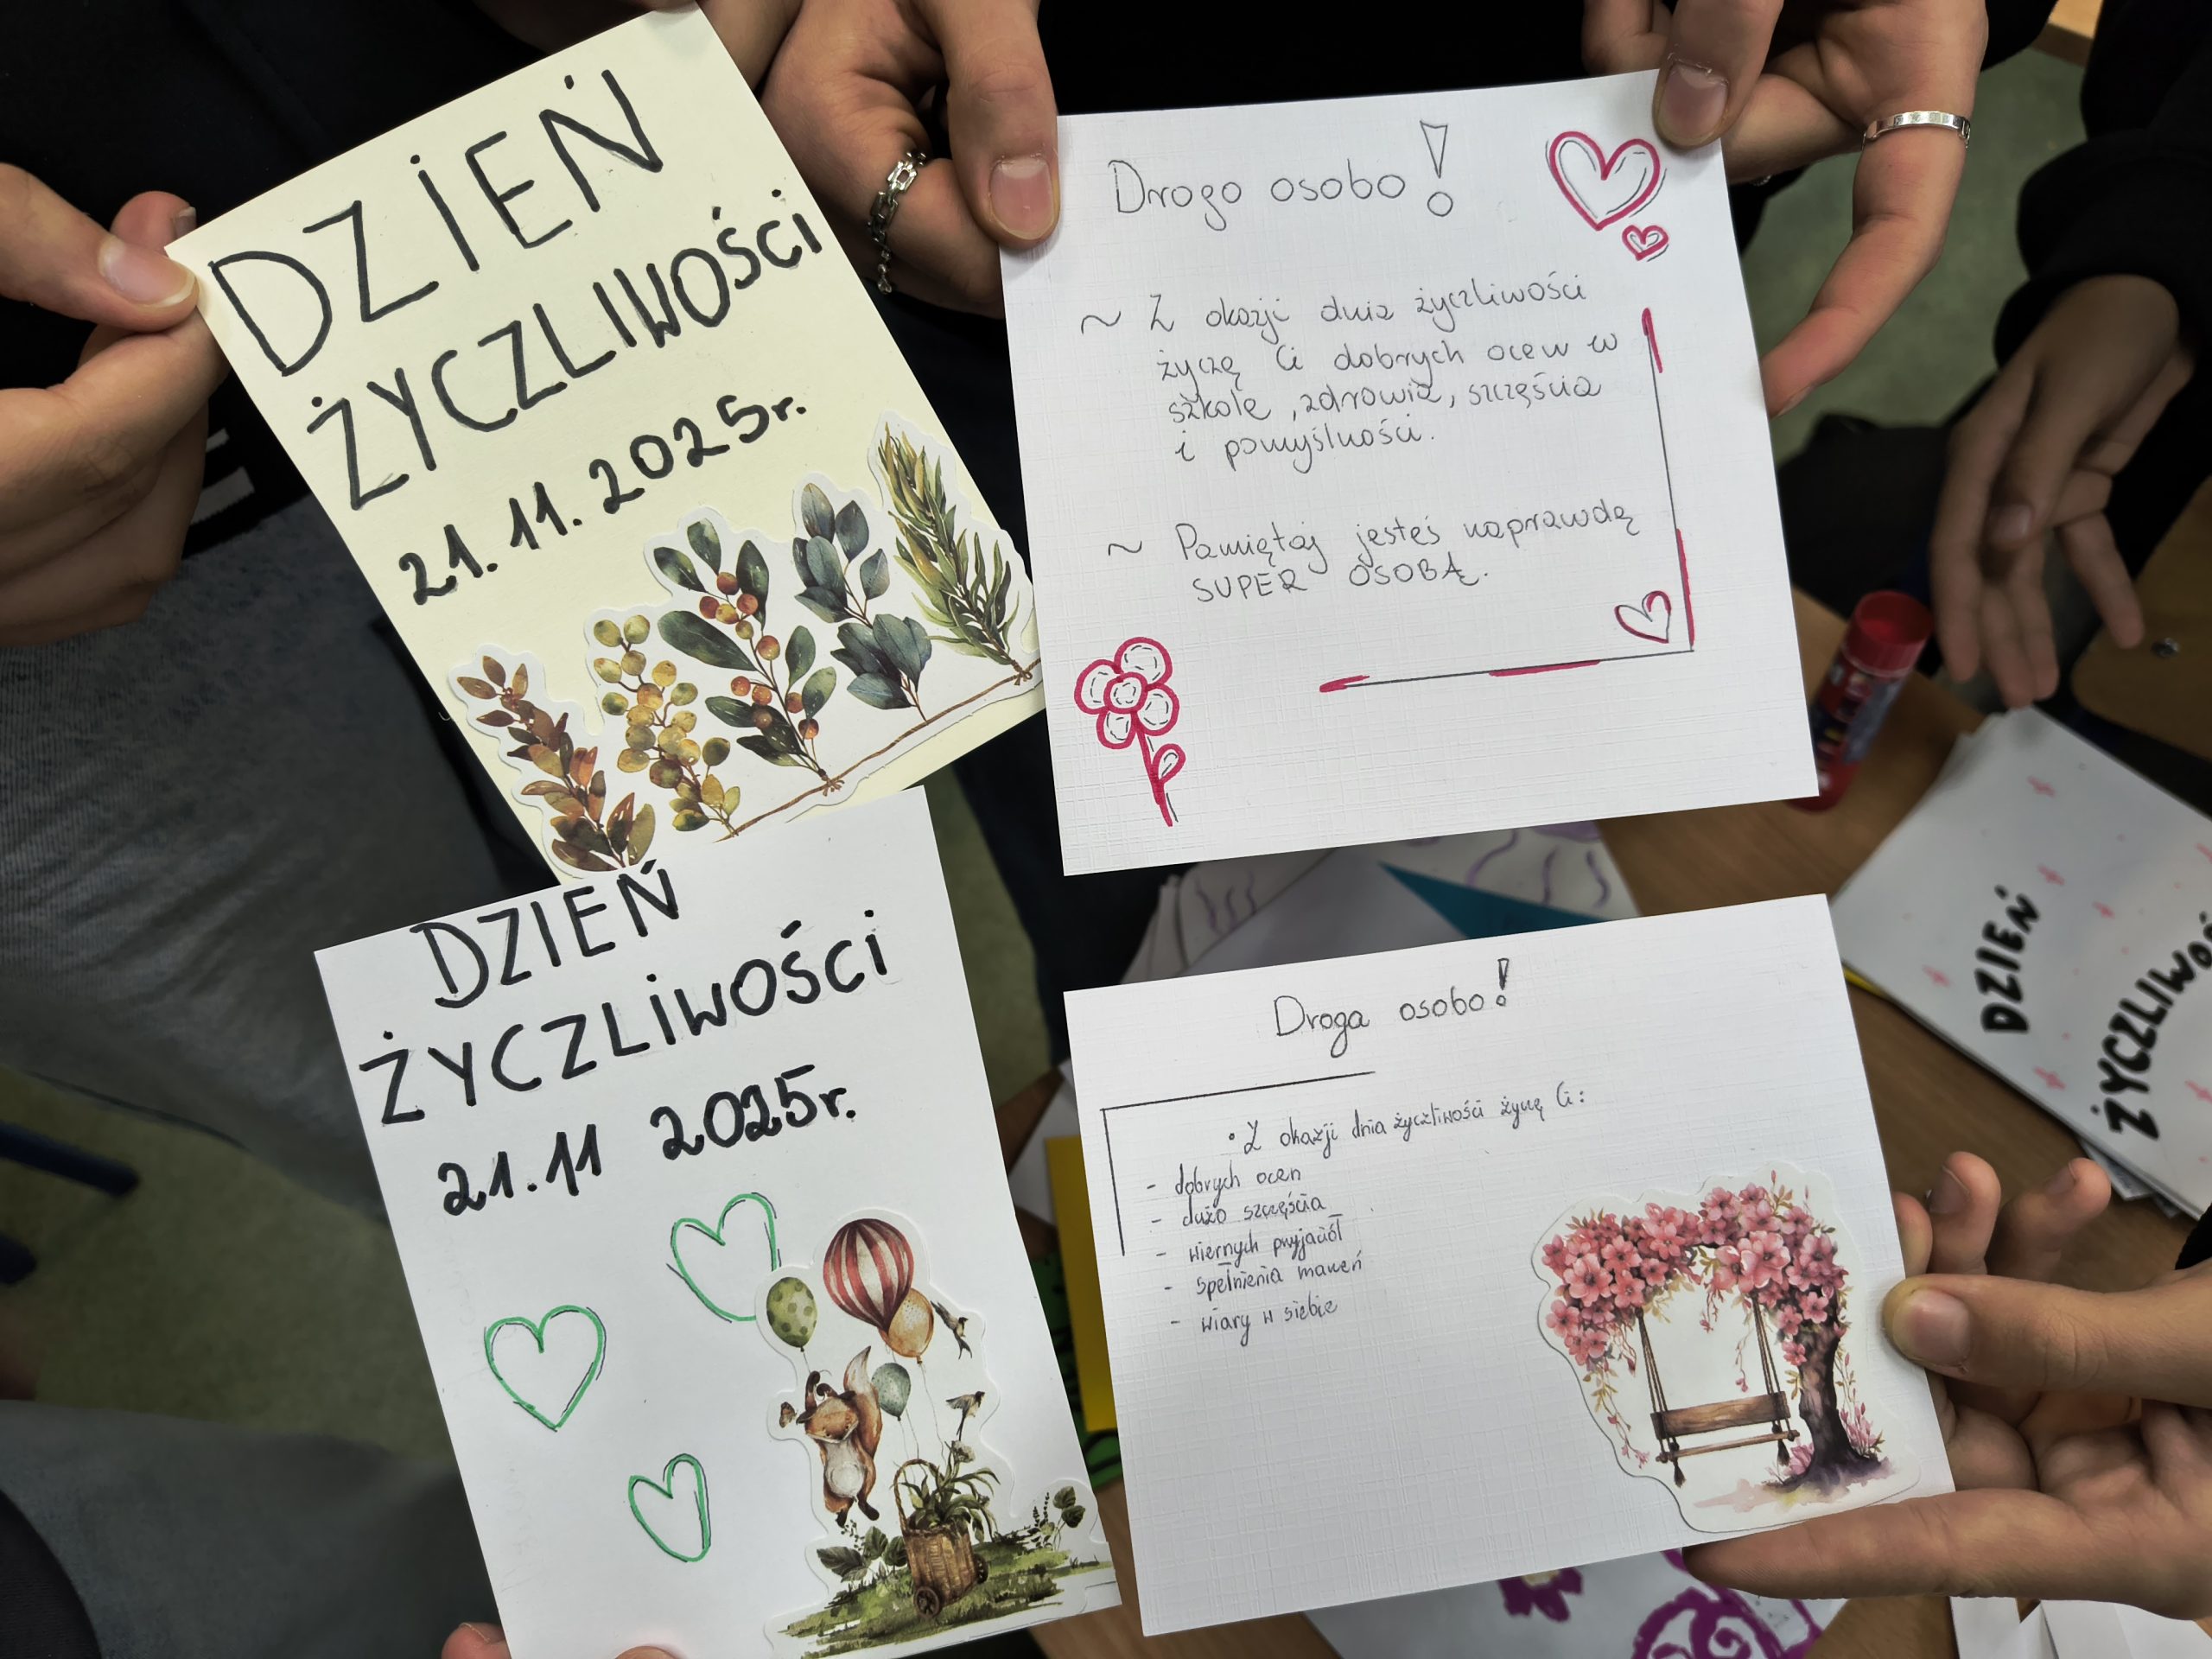 DZIEŃ
ŻYCZLIWOŚCI
21.11.2025r.
Drogo osobo!
~ Z okazji dnia życzliwości
życzę Ci dobrych ocen w
szkole, zdrowia, szczęścia
i pomyślności.
~ Pamiętaj jesteś naprawdę
SUPER OSOBĄ.
DZIEŃ
ŻYCZLIWOŚCI
21.11 2025r.
Droga osobo!
• Z okazji dnia życzliwości życzę Ci:
- dobrych ocen
- dużo szczęścia
- wiernych przyjaciół
- spełnienia marzeń
- wiary w siebie
DZIEŃ
ŻYCZLIWOŚ